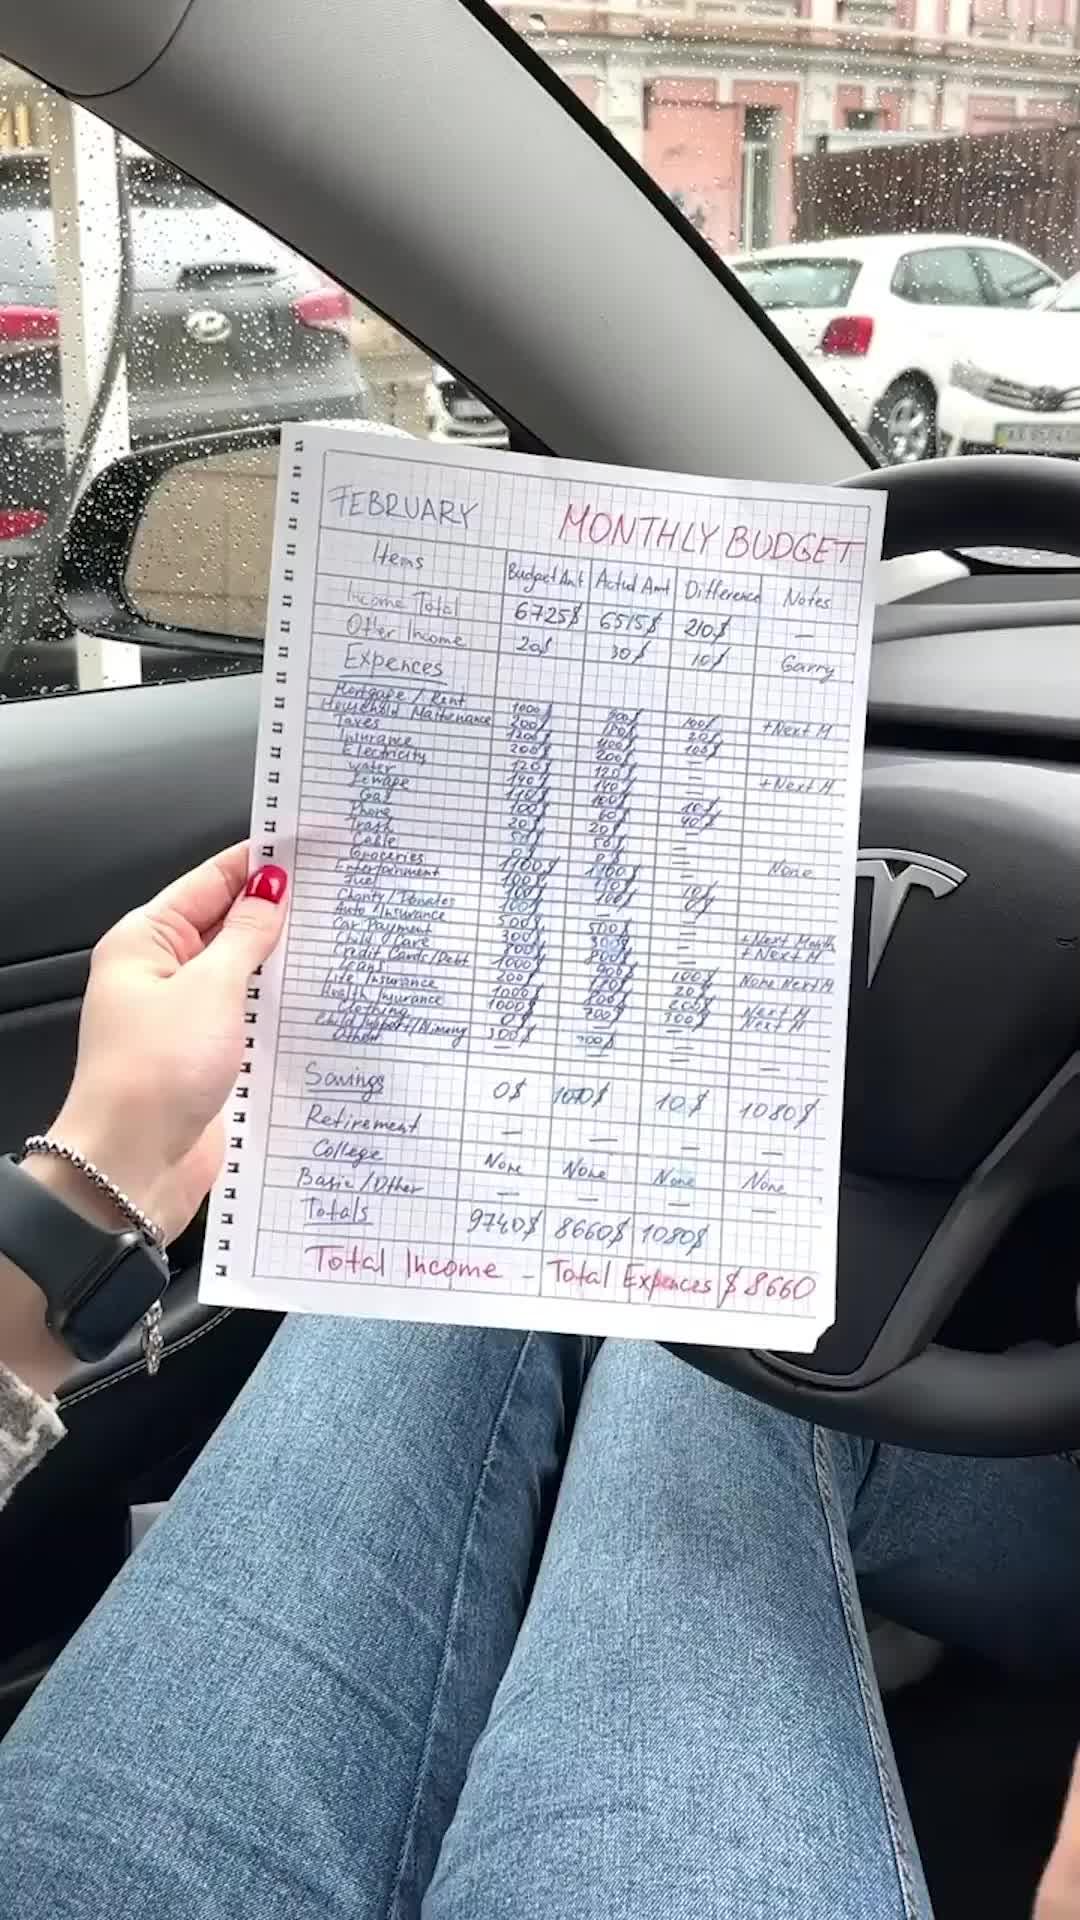 FEBRUARY MONTHLY BUDGET
Items Budget Amt Actual Amt Difference Notes
Income Total 6725$ 6515$ 210$ —
Other Income 20$ 30$ 10$ Garry
Expences
Mortgape / Rent 1000$ 900$ 100$ +Next M
Household Maitenance 200$ 180$ 20$
Taxes
Insurance 200$ 200$ —
Electricity 120$ 120$ —
Water 140$ 140$ — +Next M
Sewape 110$ 100$ 10$
Gas 100$ 60$ 40$
Phone 20$ 20$ —
Trash 50$ 50$ —
Cable 0$ 0$ — None
Groceries 1100$ 1100$ —
Entertainment 10$
Fuel 100$ 100$
Charity / Donates 100$ —
Auto / Insurance 500$ 500$ — +Next Month
Car Payment 300$ 300$ — +Next M
Child Care 800$ 800$ —
Credit Cards/Debt 1000$ 900$ 100$ None Next M
Loans 200$ 20$
Life Insurance 1000$ 800$ 200$ Next M
Health Insurance 1000$ 700$ 300$ Next M
Clothing 0$ — —
300$ 300$ —
Other — — — —
Savings 0$ 10$ 1080$
Retirement — — — —
College None None None None
Basic / Other — — — —
Totals 9740$ 8660$ 1080$
Total Income – Total Expences $ 8660